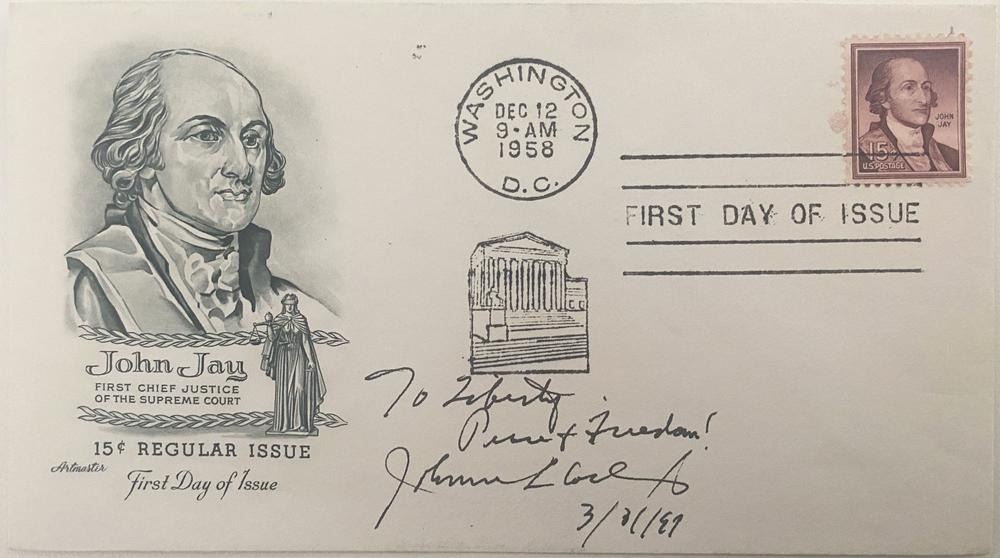 John Jay
FIRST CHIEF JUSTICE
OF THE SUPREME COURT
15¢ REGULAR ISSUE
Artmaster
First Day of Issue
WASHINGTON
DEC 12
9-AM
1958
D.C.
JOHN
JAY
15¢
U.S. POSTAGE
FIRST DAY OF ISSUE
To Liberty,
& Freedom!
Johnnie L Coch
3/31/97